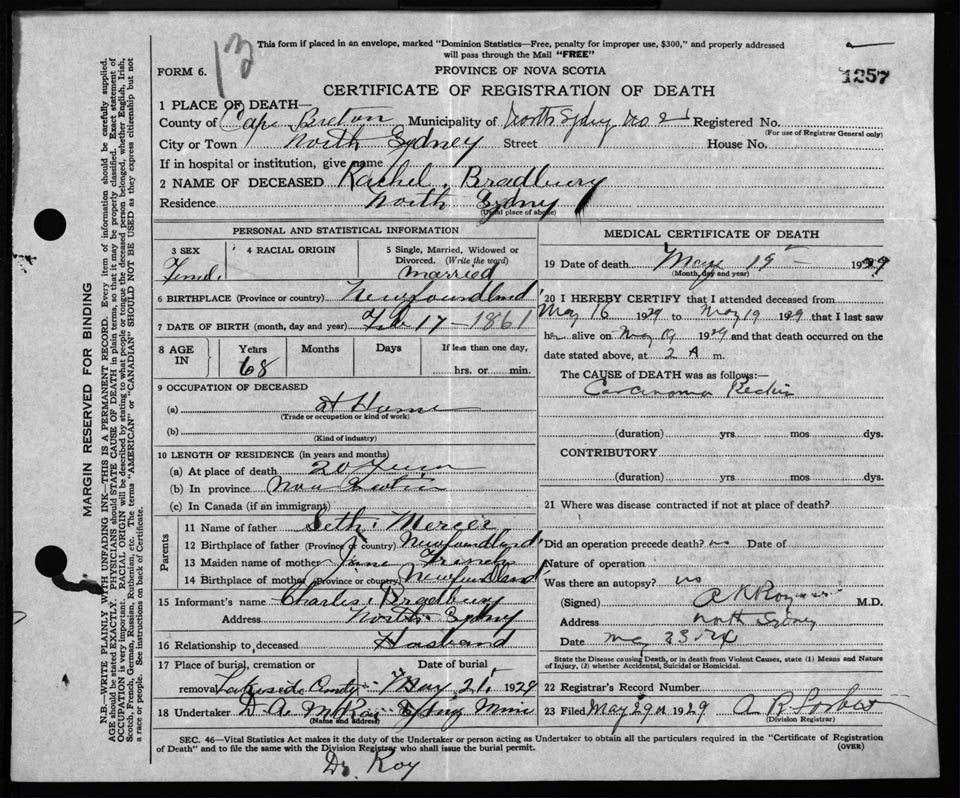 13
This form if placed in an envelope, marked "Dominion Statistics—Free, penalty for improper use, $300," and properly addressed
will pass through the Mail "FREE"
FORM 6.
PROVINCE OF NOVA SCOTIA
1257
CERTIFICATE OF REGISTRATION OF DEATH
1 PLACE OF DEATH—
County of Cape Breton Municipality of North Sydney no 2 Registered No.
(For use of Registrar General only)
City or Town North Sydney Street House No.
If in hospital or institution, give name
2 NAME OF DECEASED Rachel Bradbury
Residence North Sydney
(Usual place of abode)
PERSONAL AND STATISTICAL INFORMATION
3 SEX
Female
4 RACIAL ORIGIN
5 Single, Married, Widowed or
Divorced. (Write the word)
married
6 BIRTHPLACE (Province or country) Newfoundland
7 DATE OF BIRTH (month, day and year) Feb 17 - 1861
8 AGE
IN
Years
68
Months
Days
If less than one day,
hrs. or min.
9 OCCUPATION OF DECEASED
(a) At Home
(Trade or occupation or kind of work)
(b)
(Kind of industry)
10 LENGTH OF RESIDENCE (in years and months)
(a) At place of death 20 Years
(b) In province Nova Scotia
(c) In Canada (if an immigrant)
Parents
11 Name of father Seth Mercer
12 Birthplace of father (Province or country) Newfoundland
13 Maiden name of mother Jane
14 Birthplace of mother (Province or country) Newfoundland
15 Informant's name Charles Bradbury
Address North Sydney
16 Relationship to deceased Husband
17 Place of burial, cremation or
removal Lakeside Cemty
Date of burial
May 21, 1929
18 Undertaker D. A. McRae Sydney Mines
(Name and address)
MEDICAL CERTIFICATE OF DEATH
19 Date of death May 19 - 1929
(Month, day and year)
20 I HEREBY CERTIFY that I attended deceased from
May 16 1929 to May 19 1929 that I last saw
her alive on May 19 1929 and that death occurred on the
date stated above, at 2 A m.
The CAUSE of DEATH was as follows:—
Carcinoma Rectum
(duration) yrs mos dys.
CONTRIBUTORY
(duration) yrs. mos dys.
21 Where was disease contracted if not at place of death?
Did an operation precede death? no Date of
Nature of operation
Was there an autopsy? no
(Signed) A K Roy M.D.
Address North Sydney
Date May 23
State the Disease causing Death, or in death from Violent Causes, state (1) Means and Nature
of Injury, (2) whether Accidental, Suicidal or Homicidal.
22 Registrar's Record Number
23 Filed May 29th 1929 A R Forbes
(Division Registrar)
SEC. 46—Vital Statistics Act makes it the duty of the Undertaker or person acting as Undertaker to obtain all the particulars required in the "Certificate of Registration
of Death" and to file the same with the Division Registrar who shall issue the burial permit.
(OVER)
Dr. Roy
MARGIN RESERVED FOR BINDING
N.B.—WRITE PLAINLY WITH UNFADING INK—THIS IS A PERMANENT RECORD. Every item of information should be carefully supplied.
AGE should be stated EXACTLY. PHYSICIANS should STATE CAUSE OF DEATH in plain terms, so that it may be properly classified. Exact statement of
OCCUPATION is very important. RACIAL ORIGIN will be described by stating to what people or tongue the deceased person belonged, whether English, Irish,
Scotch, French, German, Russian, Ruthenian, etc. The terms "AMERICAN" or "CANADIAN" SHOULD NOT BE USED as they express citizenship but not
a race or people. See instructions on back of Certificate.